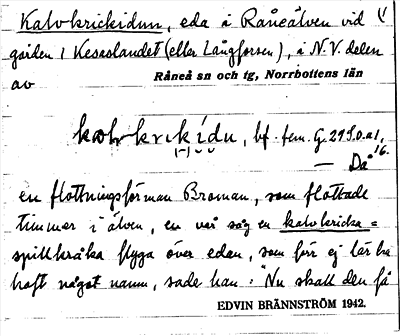 Kalvkrickidun, eda i Råneälven vid
gården 1 Kesaslandet (eller Långforsen), i N.V. delen
av Råneå sn och tg, Norrbottens län
bf. fem. G.
— Då
en flottningsförman Broman, som flottade
timmer i älven, en vår såg en kalvkricka =
spillkråka flyga över edan, som förr ej lär ha
haft något namn, sade han: "Nu skall den få
EDVIN BRÄNNSTRÖM 1942.